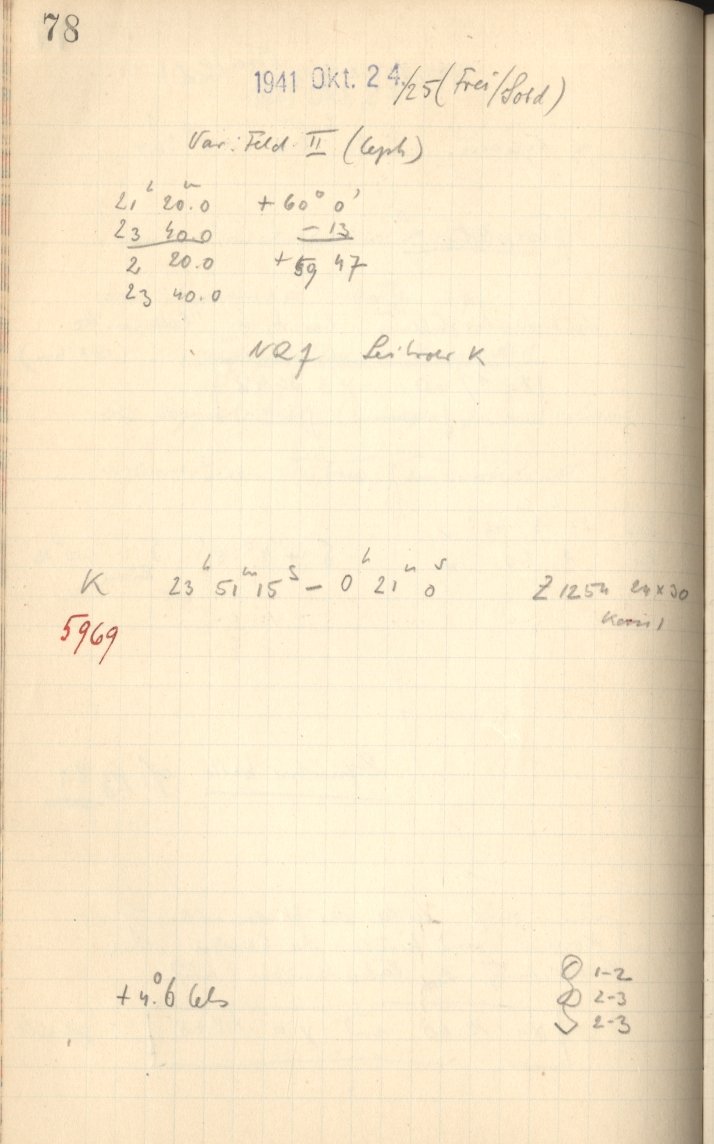 78
1941 Okt. 24./25 (Frei/Sold)
Var. Feld II (Ceph)
21h 20m.0 +60° 0'
23 40.0 -13
2 20.0 +59 47
23 40.0
NQ7 K
K 23h 51m 15s – 0h 21m 0s Z 1254 24x30
5969
+4°.6 Cels
1-2
2-3
2-3